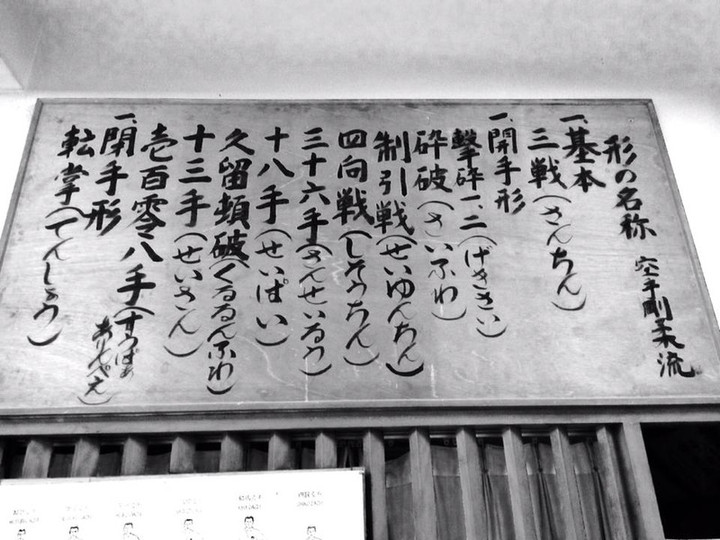 形の名称 空手剛柔流
一、基本
三戦（さんちん）
一、開手形
撃砕一、二（げきさい）
砕破（さいふわ）
制引戦（せいゆんちん）
四向戦（しそうちん）
三十六手（さんせいるう）
十八手（せいぱい）
久留頓破（くるるんふわ）
十三手（せいさん）
壱百零八手（すうぱあありんぺえ）
一、閉手形
転掌（てんしょう）